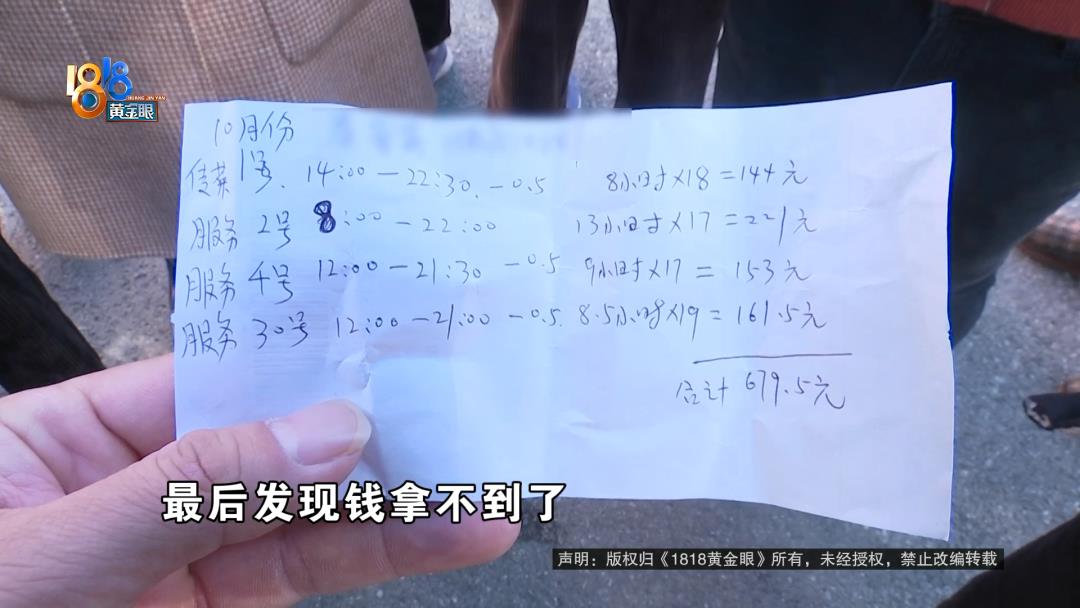 1818
HUANG JIN YAN
黄金眼
10月份
传菜 1号、 14:00-22:30、-0.5 8小时×18=144元
服务 2号 8:00-22:00 13小时×17=221元
服务 4号 12:00-21:30 -0.5 9小时×17=153元
服务 30号 12:00-21:00-0.5. 8.5小时×19=161.5元
合计 679.5元
最后发现钱拿不到了
声明：版权归《1818黄金眼》所有，未经授权，禁止改编转载